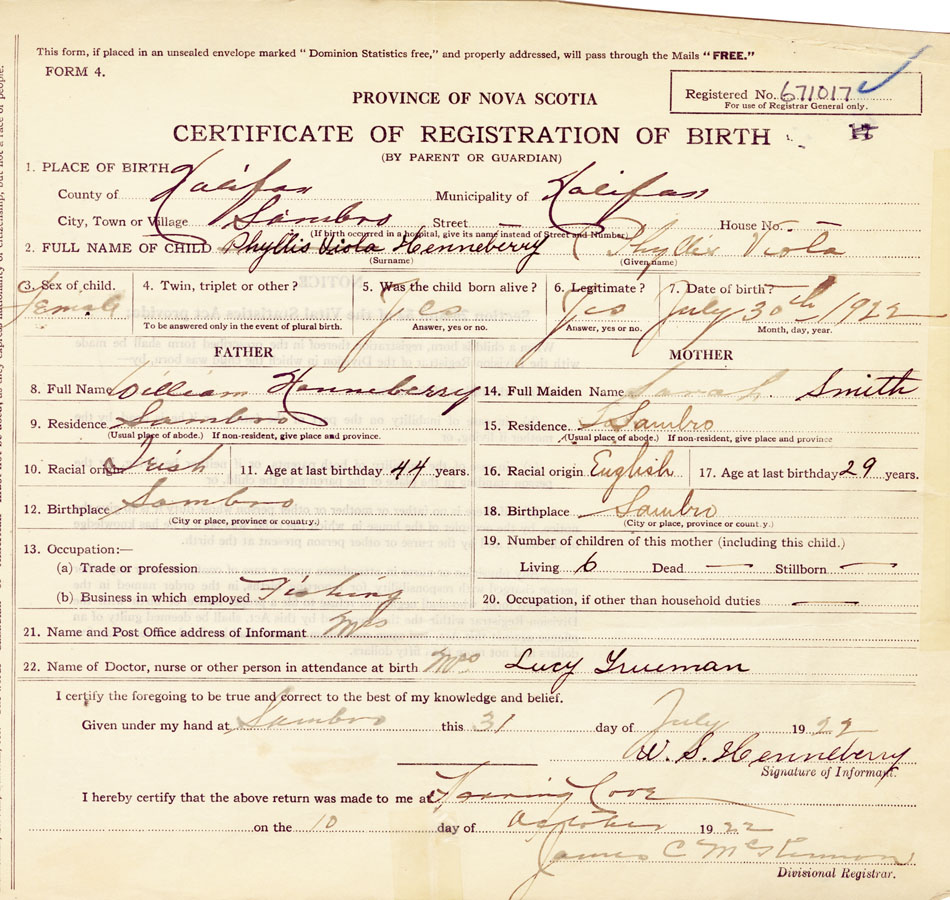 This form, if placed in an unsealed envelope marked "Dominion Statistics free," and properly addressed, will pass through the Mails "FREE."
FORM 4.
Registered No. 671017
For use of Registrar General only.
PROVINCE OF NOVA SCOTIA
CERTIFICATE OF REGISTRATION OF BIRTH
(BY PARENT OR GUARDIAN)
1. PLACE OF BIRTH
County of Halifax Municipality of Halifax
City, Town or Village Sambro Street — House No. —
(If birth occurred in a hospital, give its name instead of Street and Number)
2. FULL NAME OF CHILD Phyllis Viola Henneberry Phyllis Viola
(Surname) (Given name)
3. Sex of child. 4. Twin, triplet or other? 5. Was the child born alive? 6. Legitimate? 7. Date of birth?
Female Yes Yes July 30th 1922
To be answered only in the event of plural birth. Answer, yes or no. Answer, yes or no. Month, day, year.
FATHER MOTHER
8. Full Name William Henneberry 14. Full Maiden Name Sarah. Smith
9. Residence Sambro 15. Residence. Sambro
(Usual place of abode.) If non-resident, give place and province. (Usual place of abode.) If non-resident, give place and province
10. Racial origin Irish 11. Age at last birthday 44 years. 16. Racial origin English 17. Age at last birthday 29 years.
12. Birthplace Sambro 18. Birthplace Sambro
(City or place, province or country.) (City or place, province or count.y.)
13. Occupation:— 19. Number of children of this mother (including this child.)
(a) Trade or profession Living 6 Dead — Stillborn —
(b) Business in which employed Fishing 20. Occupation, if other than household duties —
21. Name and Post Office address of Informant Mrs
22. Name of Doctor, nurse or other person in attendance at birth Mrs Lucy Trueman
I certify the foregoing to be true and correct to the best of my knowledge and belief.
Given under my hand at Sambro this 31 day of July 1922
W. S. Henneberry
Signature of Informant.
I hereby certify that the above return was made to me at Herring Cove
on the 10 day of October 1922
James C
Divisional Registrar.